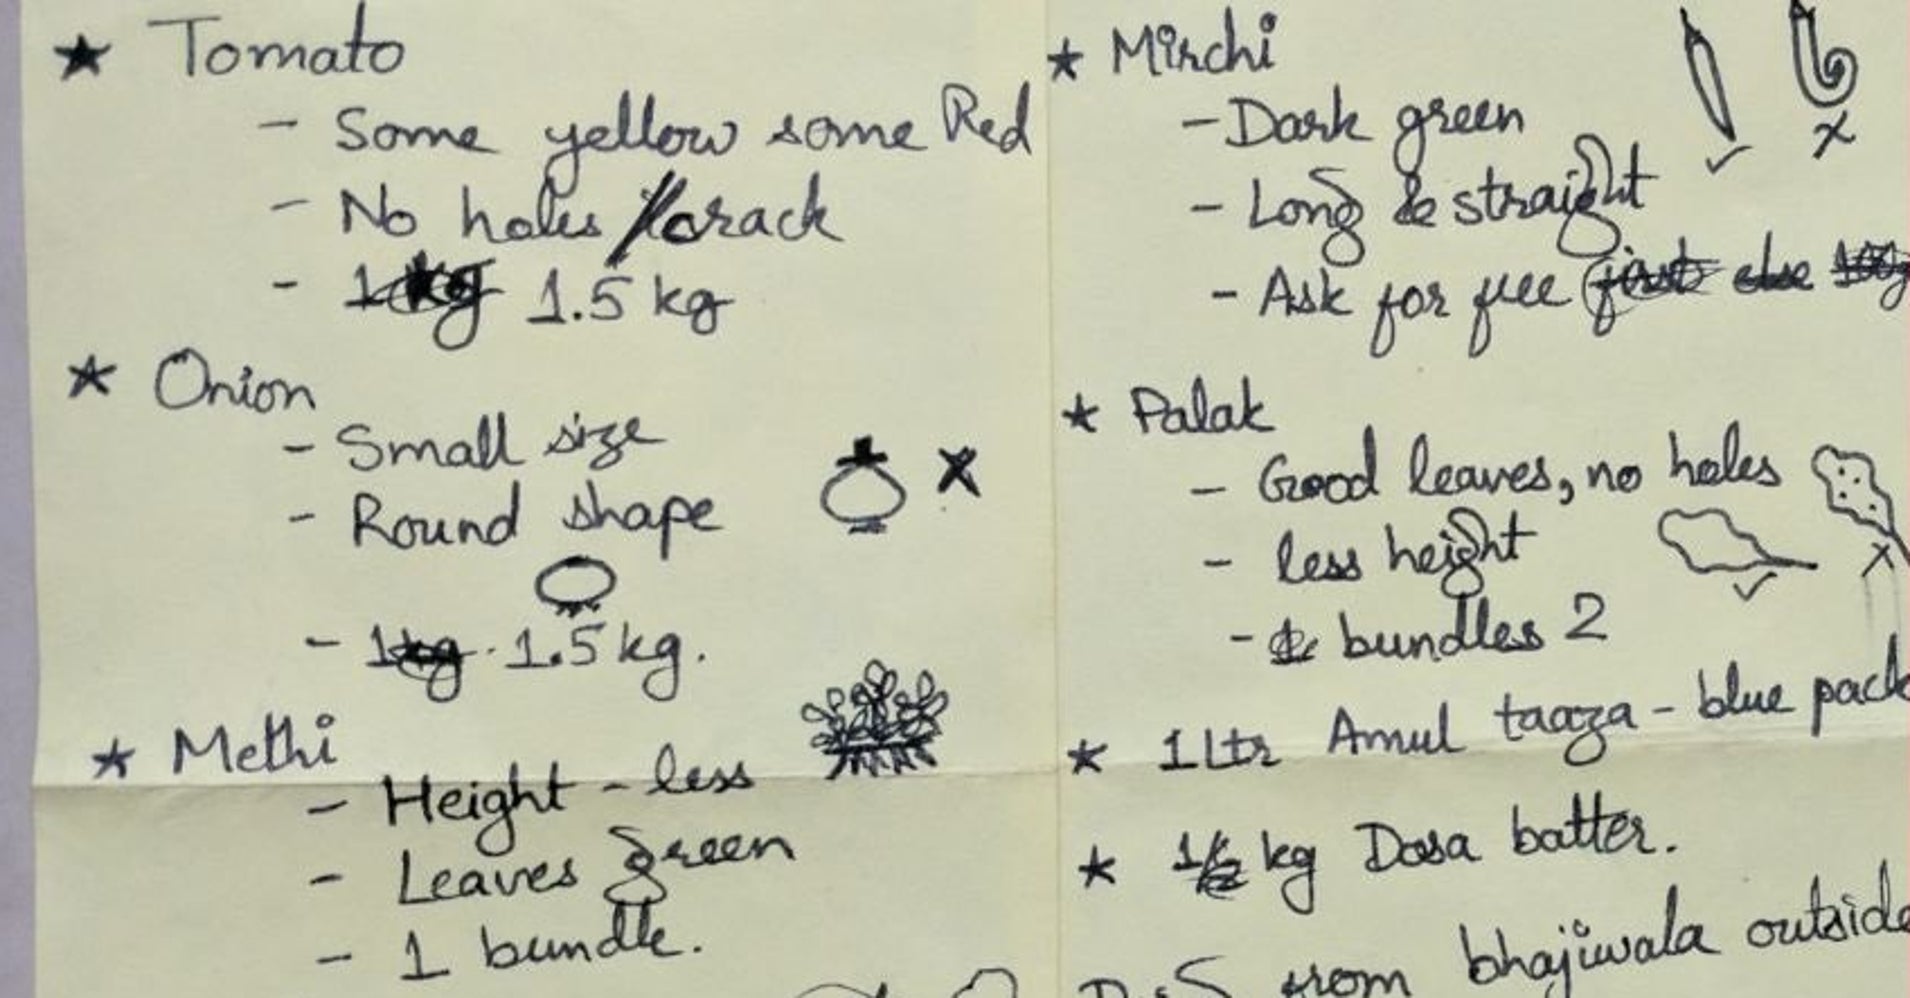 ★ Tomato
- Some yellow some Red
- No holes /crack
- 1kg 1.5 kg
★ Onion
- Small size
- Round shape
- 1kg 1.5 kg.
★ Methi
- Height - less
- Leaves green
- 1 bundle.
★ Mirchi
- Dark green
- Long & straight
- Ask for free (first else 100g
★ Palak
- Good leaves, no holes
- less height
- bundles 2
★ 1 Ltr Amul taaza - blue pack
★ 1/2 kg Dosa batter.
from bhajiwala outside